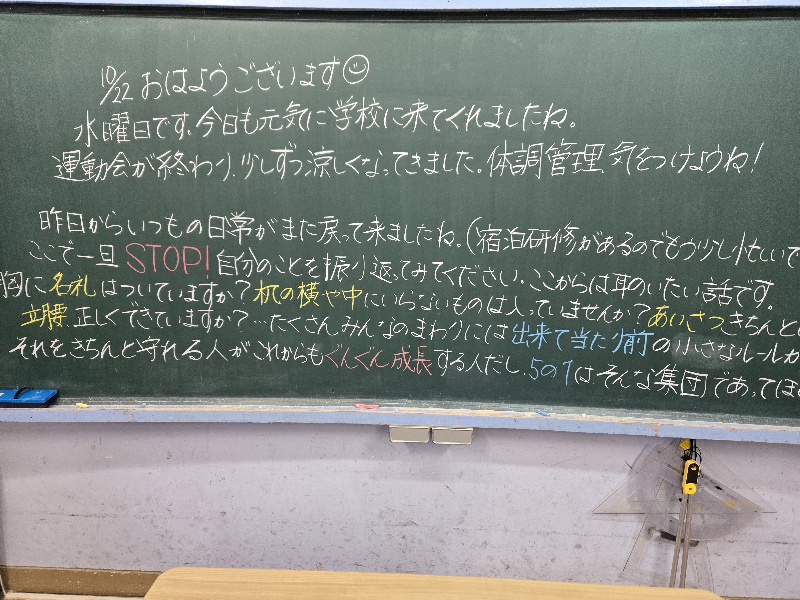 10/22 おはようございます☺
水曜日です。今日も元気に学校に来てくれましたね。
運動会が終わり、少しずつ涼しくなってきました。体調管理、気をつけようね!
昨日からいつもの日常がまた戻って来ましたね。(宿泊研修があるのでもう少し忙しいで
ここで一旦STOP!自分のことを振り返ってみてください。ここからは耳のいたい話です。
胸に名札はついていますか?机の横や中にいらないものは入っていませんか?あいさつきちんと
立腰正しくできていますか?…たくさん、みんなのまわりには出来て当たり前の小さなルールが
それをきちんと守れる人がこれからもぐんぐん成長する人だし、5の1はそんな集団であってほ